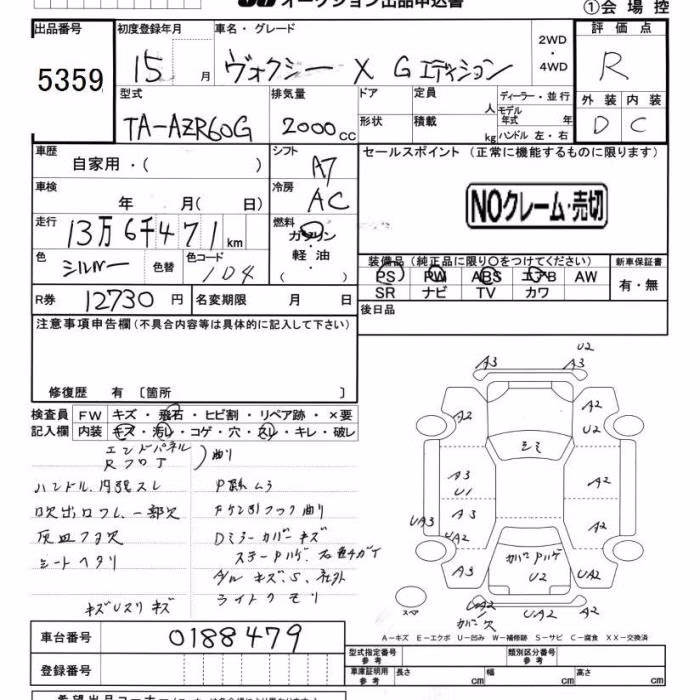 オークション出品申込書
①会場控
出品番号
5359
初度登録年月
15 月
車名・グレード
ヴォクシー X Gエディション
2WD
・
4WD
評価点
R
外装 内装
D C
型式
TA-AZR60G
排気量
2000 cc
ドア
形状
定員
人
積載
kg
ディーラー・並行
モデル
年式 年
ハンドル 左・右
車歴
自家用・( )
シフト
A7
セールスポイント (正常に機能するものに限ります)
NOクレーム・売切
車検
年 月( 日)
冷房
AC
走行
13万6千471km
燃料
ガソリン
・
軽油
( )
色
シルバー
色替
色コード
1D4
装備品(純正品に限り○をつけてください)
PS PW ABS エアB AW
SR ナビ TV カワ
新車保証書
有・無
R券 12730 円
名変期限 月 日
後日品
注意事項申告欄(不具合内容等は具体的に記入して下さい)
修復歴 有 〔箇所 〕
検査員
記入欄
FW キズ・飛石・ヒビ割・リペア跡・×要
内装 キズ・汚れ・コゲ・穴・スレ・キレ・破レ
エンドパネル
RフロT
曲り
ハンドル、内張スレ
吹出口フレ一部欠
灰皿フタ欠
シートヘタリ
キズUスリキズ
P跡ムラ
Fケン引フック曲り
Dミラーカバーキズ
ステーPハゲ、右色チガイ
ライトクモリ
U2
A3
A3
A2
A2
U2
シミ
A3
U1
A2
UA3
A3
A2
UA2
カバPハゲ
U2
A3
UA2
スペ
UA2
カバー欠
UA2
A2
A−キズ E−エクボ U−凹み W−補修跡 S−サビ C−腐食 XX−交換済
車台番号
0188479
登録番号
型式指定番号
参考
類別区分番号
参考
車庫証明用
参考
長さ cm
幅 cm
高さ cm
希望出品コーナー